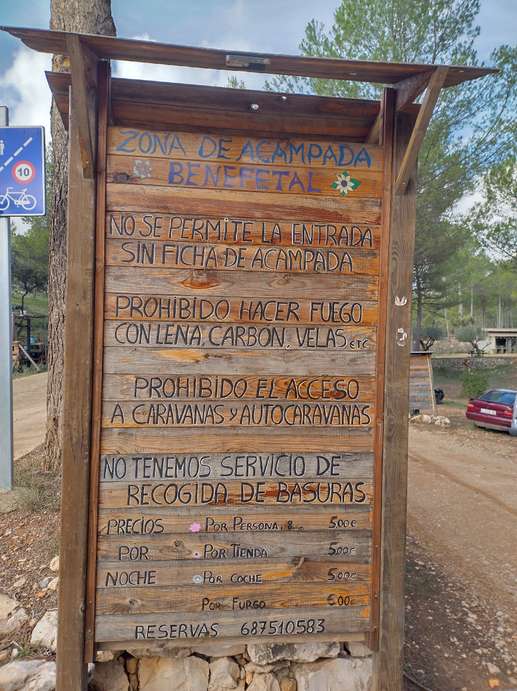 ZONA DE ACAMPADA
BENEFETAL
NO SE PERMITE LA ENTRADA
SIN FICHA DE ACAMPADA
PROHIBIDO HACER FUEGO
CON LEÑA, CARBÓN, VELAS, etc
PROHIBIDO EL ACCESO
A CARAVANAS Y AUTOCARAVANAS
NO TENEMOS SERVICIO DE
RECOGIDA DE BASURAS
PRECIOS POR PERSONA, 5,00€
POR POR TIENDA 5,00€
NOCHE POR COCHE 5,00€
POR FURGO 5,00€
RESERVAS 687510583
10